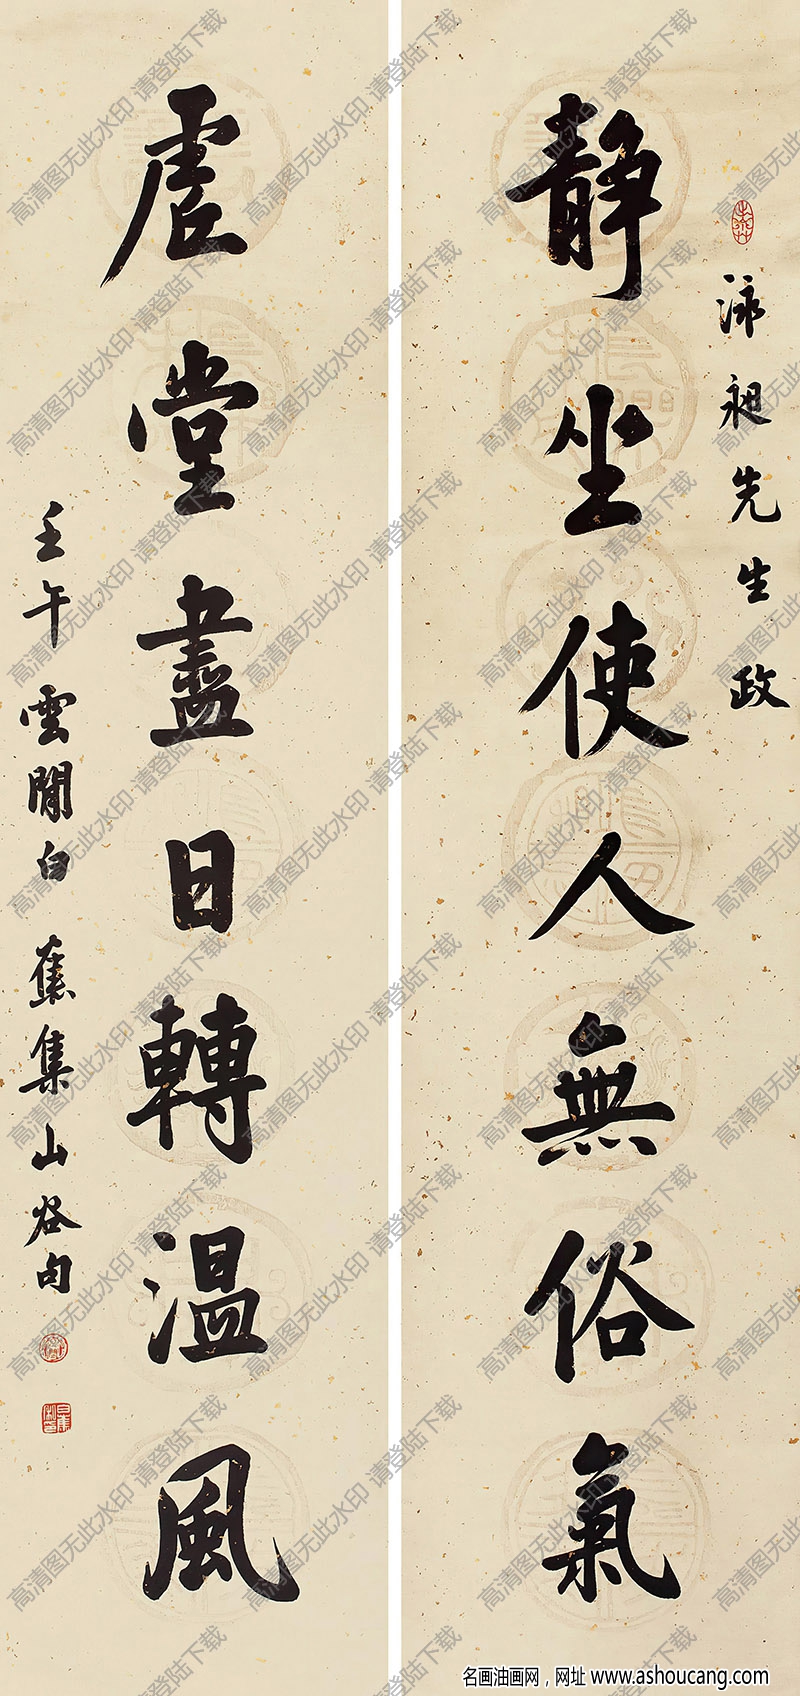 泳昶先生政
靜坐使人無俗氣
虗堂盡日轉溫風
壬午雲閒白蕉集山谷句
高清图无此水印 请登陆下载
名画油画网，网址 www.ashoucang.com